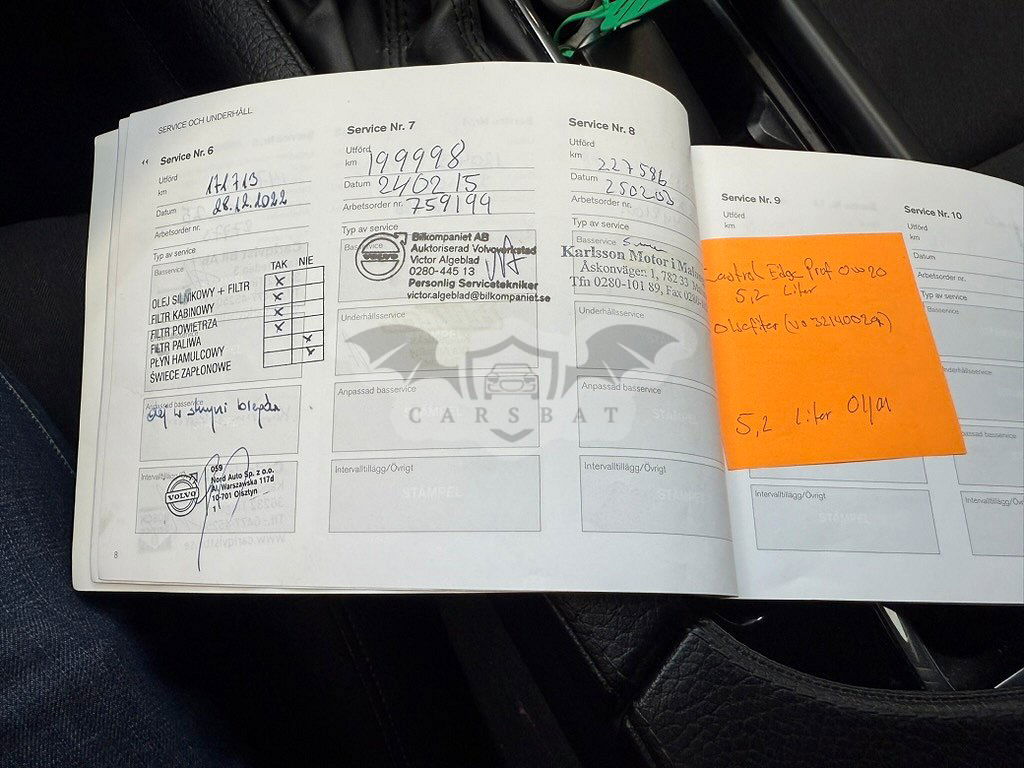 SERVICE OCH UNDERHÅLL
Service Nr. 6
Utförd
km 171713
Datum 28.12.2022
Arbetsorder nr.
Typ av service
Basservice
TAK NIE
OLEJ SILNIKOWY + FILTR X
FILTR KABINOWY X
FILTR POWIETRZA X
FILTR PALIWA X
PŁYN HAMULCOWY X
ŚWIECE ZAPŁONOWE X
Anpassad basservice
olej w skrzyni biegów
Intervalltillägg
VOLVO
059
Nord Auto Sp. z o.o.
Al. Warszawska 117d
10-701 Olsztyn
1
8
Service Nr. 7
Utförd
km 199998
Datum 240215
Arbetsorder nr. 759199
Typ av service
Basservice
VOLVO
Bilkompaniet AB
Auktoriserad Volvoverkstad
Victor Algeblad
0280-445 13
Personlig Servicetekniker
victor.algeblad@bilkompaniet.se
Underhållsservice
STÄMPEL
Anpassad basservice
Intervalltillägg/Övrigt
STÄMPEL
Service Nr. 8
Utförd
km 227586
Datum 250203
Arbetsorder nr.
Typ av service
Basservice
Karlsson Motor i
Åskonväger 1, 782 33
Tfn 0280-101 89, Fax 0280-
Underhållsservice
Anpassad basservice
STÄMPEL
Intervalltillägg/Övrigt
STÄMPEL
CARSBAT
Service Nr. 9
Utförd
km
Castrol Edge Prof 0W20
5,2 Liter
Oliefilter (vo 32140029)
5,2 Liter
Intervalltillägg/Övrigt
STÄMPEL
Service Nr. 10
Utförd
km
Datum
Arbetsorder nr.
Typ av service
Basservice
Underhållsservice
Anpassad basservice
Intervalltillägg/Övrigt